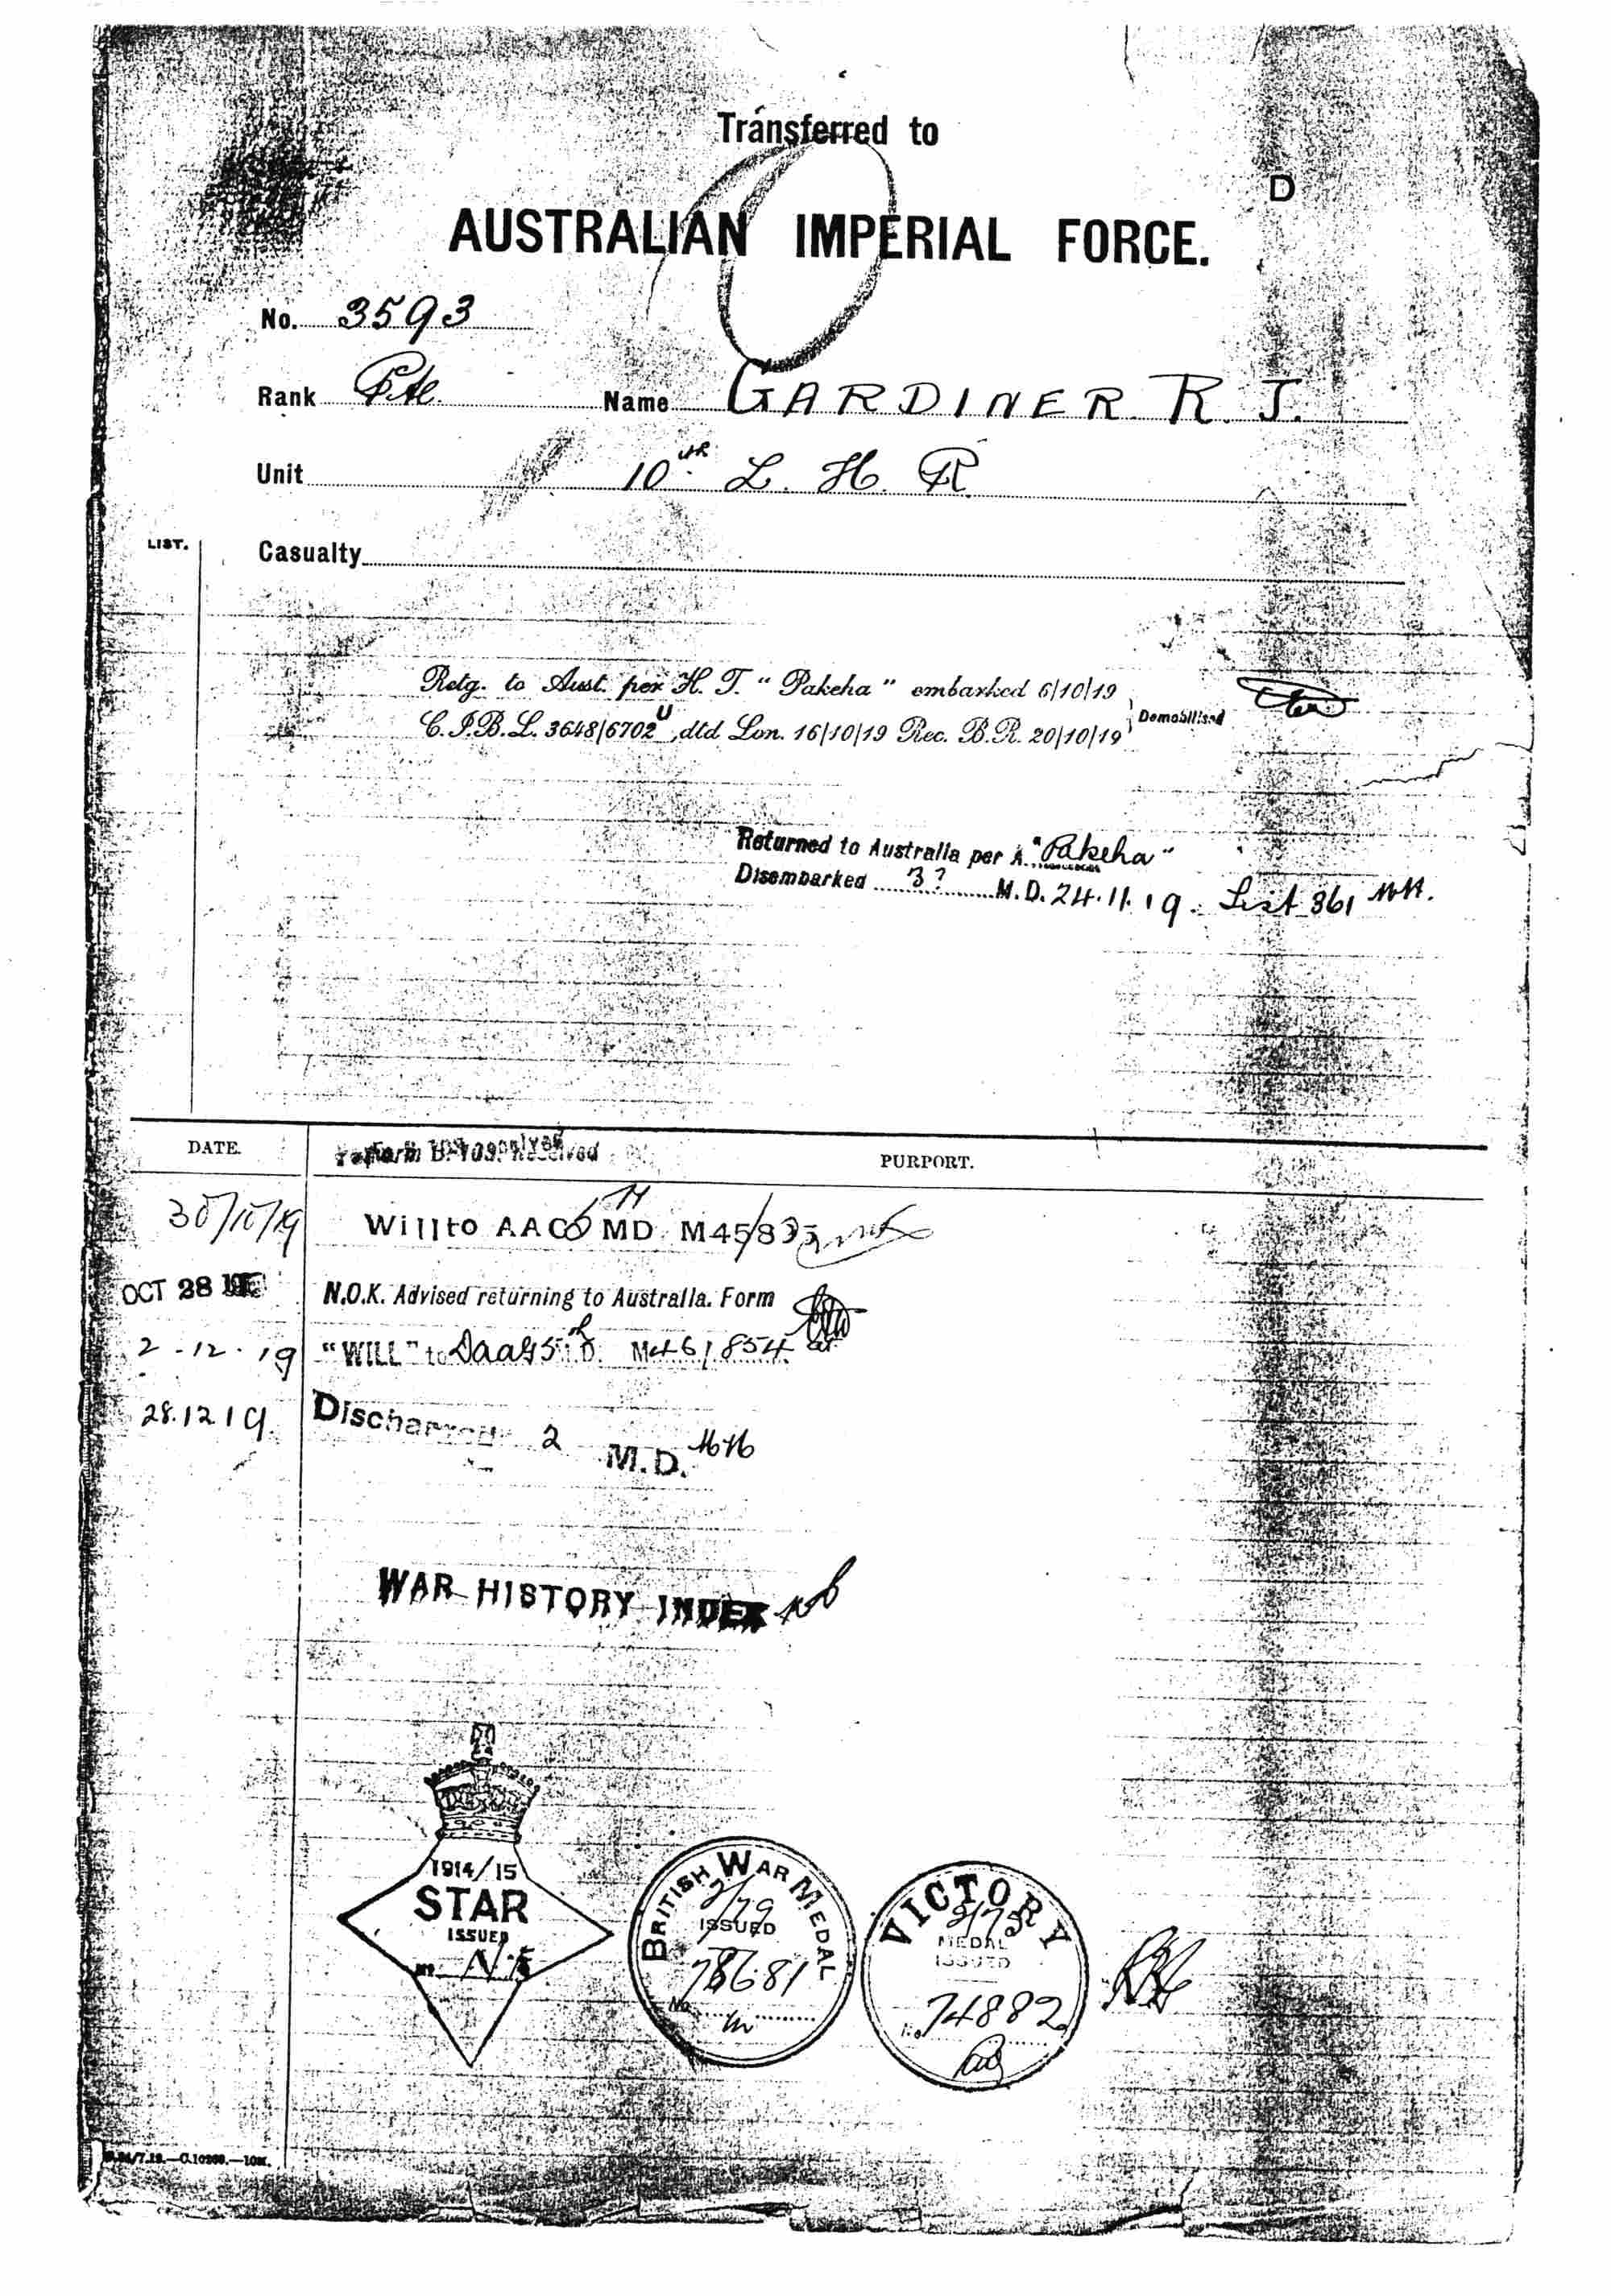 Transferred to
D
AUSTRALIAN IMPERIAL FORCE.
No. 3593
Rank Pte. Name GARDINER R. J.
Unit 10th L. H. R
LIST.
Casualty
Retg. to Aust. per H. T. " Pakeha " embarked 6/10/19
C.I.B.L. 3648/6702 U, dtd. Lon. 16/10/19 Rec. B.R. 20/10/19 Demobilised
Returned to Australia per A. "Pakeha"
Disembarked 3? M.D. 24.11.19. List 361
DATE. PURPORT.
30/10/19 Will to AAG MD. M45/
OCT 28 N.O.K. Advised returning to Australia. Form
2-12-19 "WILL" to M461854
28.12.19 Discharged 2 M.D.
WAR HISTORY INDEX
1914/15
STAR
ISSUED
No.
BRITISH WAR MEDAL
ISSUED
No.
78681
VICTORY
MEDAL
ISSUED
No. 74882